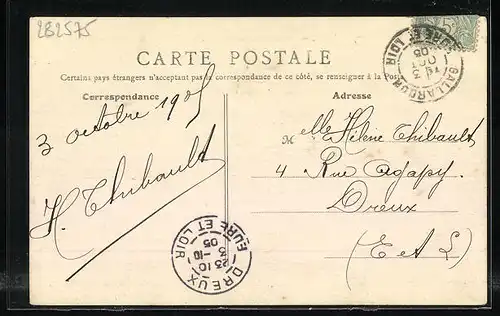 282575
CARTE POSTALE
Certains pays étrangers n'acceptant pas la correspondance de ce côté, se renseigner à la Poste
Correspondance
Adresse
3 octobre 1905
H. Thibault
Melle Hélène Thibault
4 Rue Agapy.
Dreux
(E et L)
GALLARDON
EURE ET LOIR
3
OCT
05
DREUX
EURE ET LOIR
23 10
3 -10
05